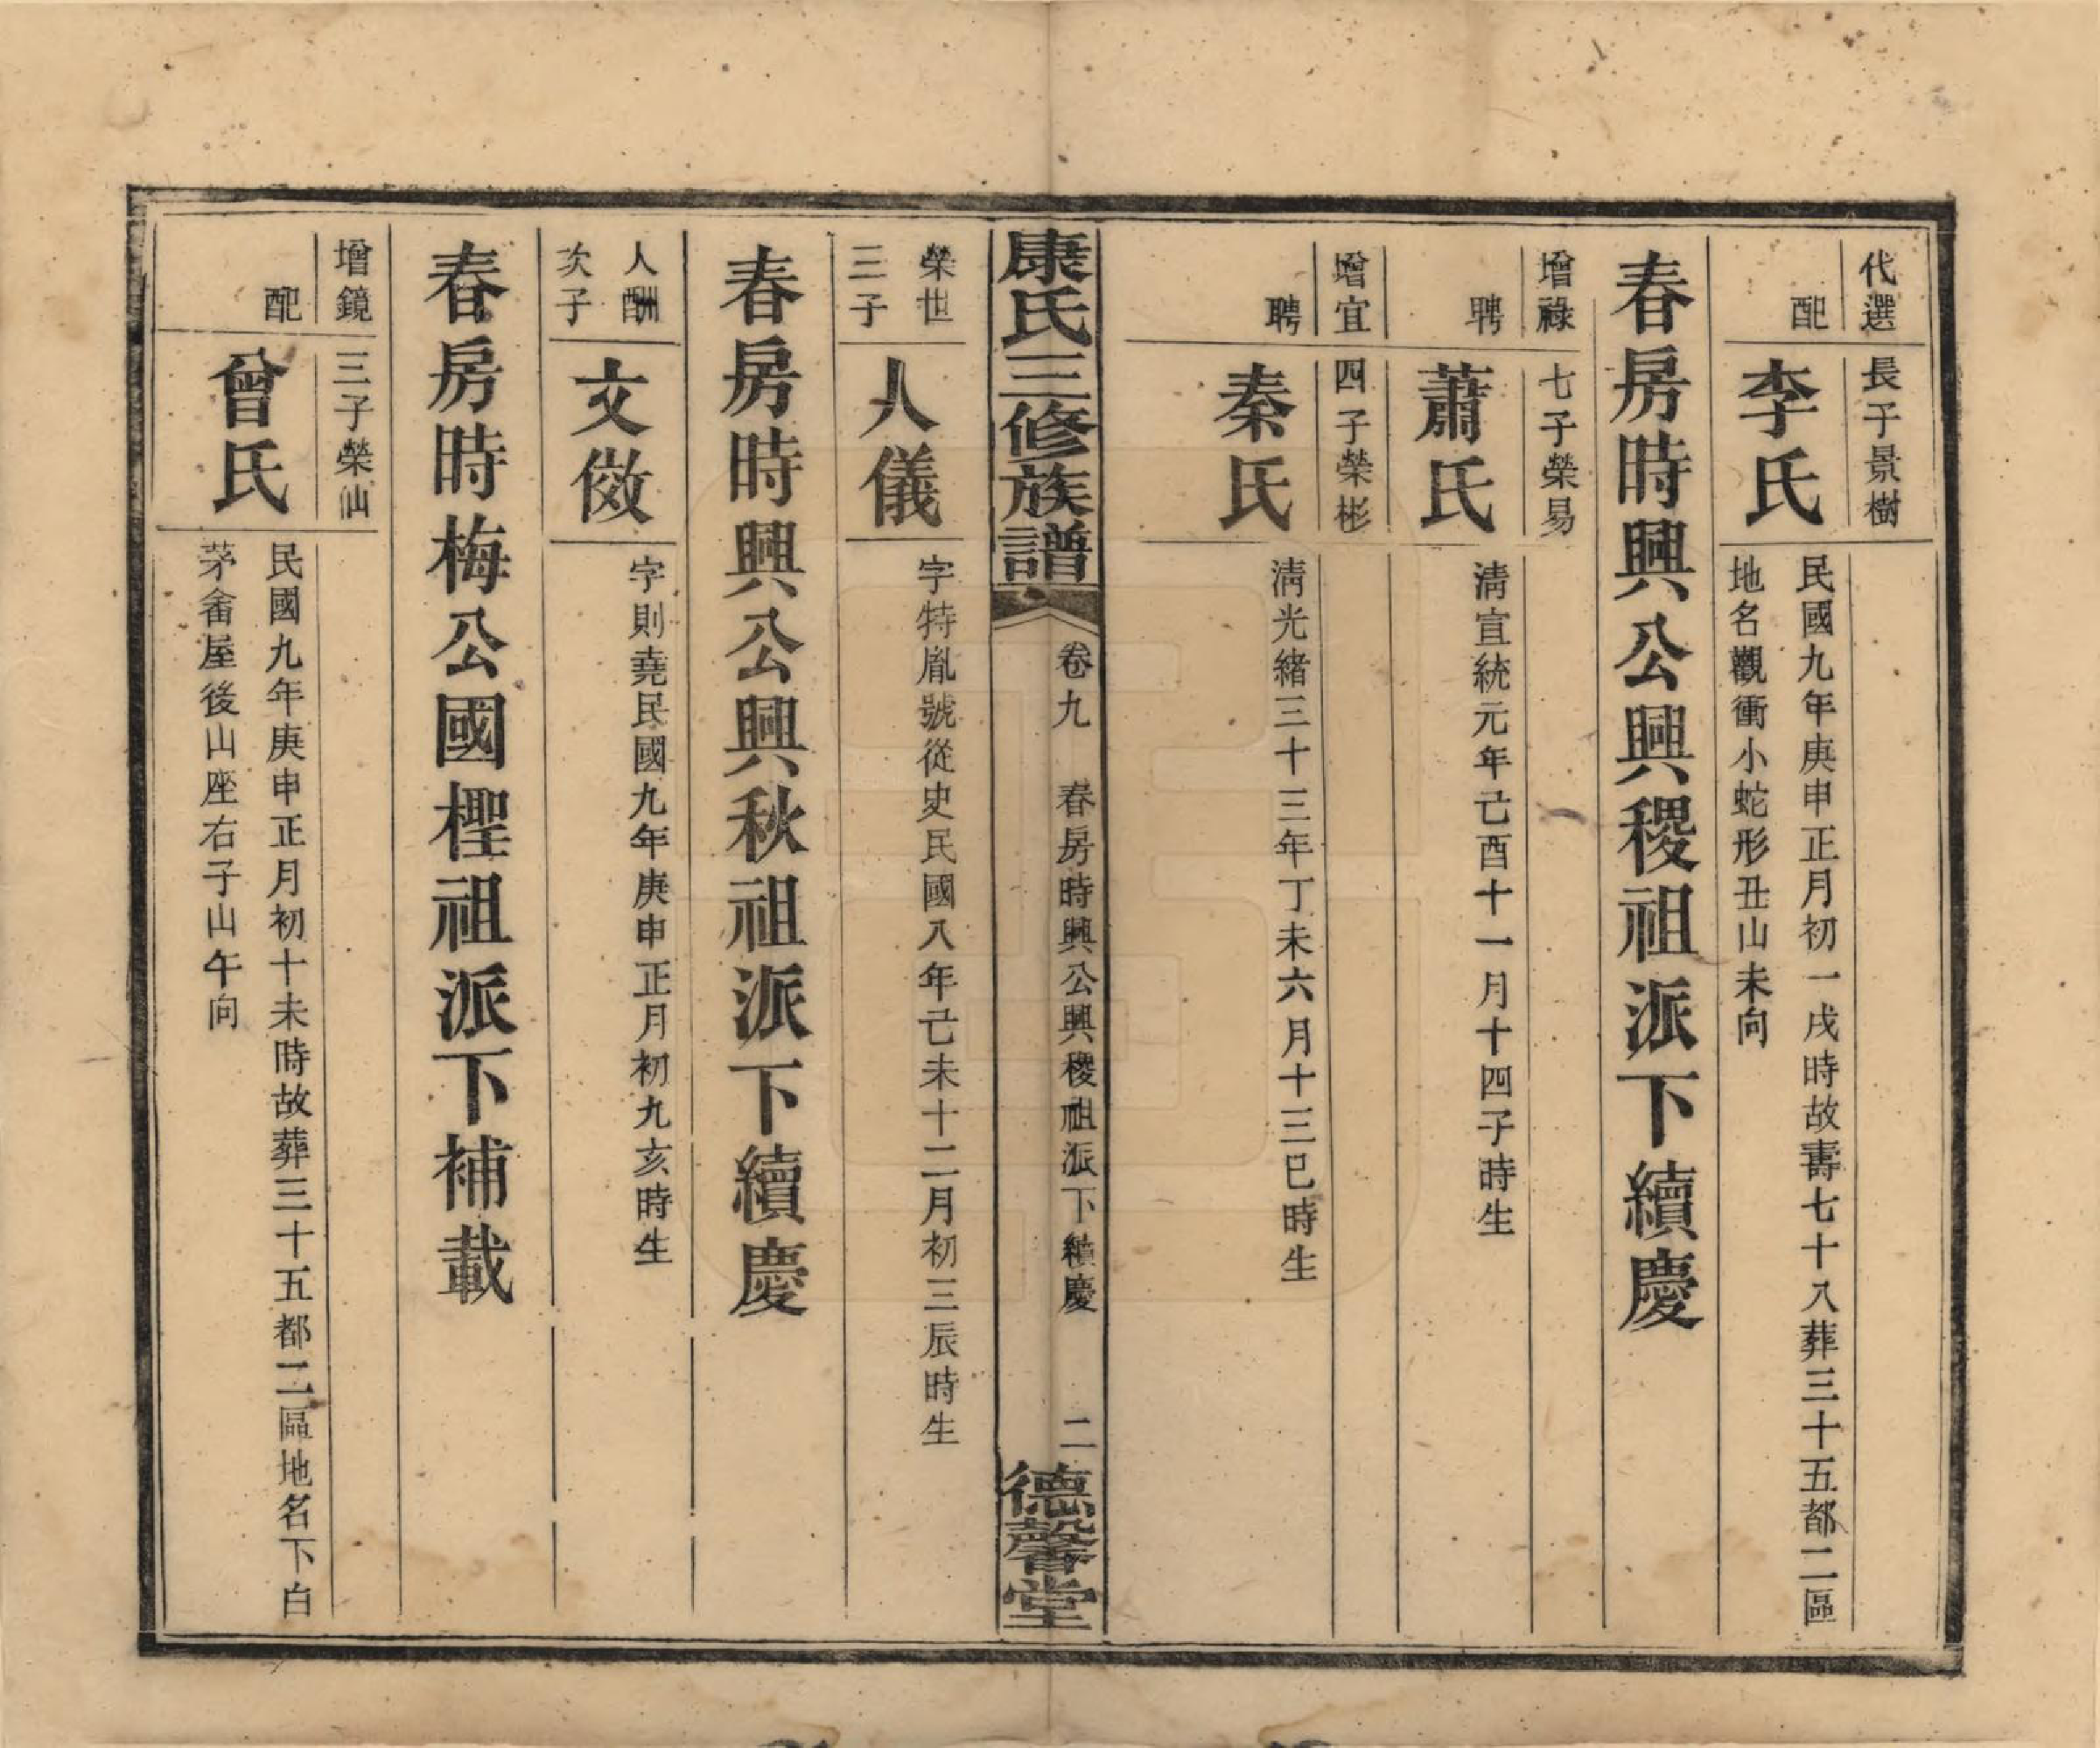 代選 長子景樹
配 李氏 民國九年庚申正月初一戌時故壽七十八葬三十五都二區
地名觀衝小蛇形丑山未向
春房時興公興稷祖派下續慶
增祿 七子榮易
聘 蕭氏 清宣統元年己酉十一月十四子時生
增宜 四子榮彬
聘 秦氏 清光緒三十三年丁未六月十三巳時生
康氏三修族譜 卷九 春房時興公興稷祖派下續慶 二 德馨堂
榮世三子 人儀 字特胤號從史民國八年己未十二月初三辰時生
春房時興公興秋祖派下續慶
人酬次子 文傚 字則堯民國九年庚申正月初九亥時生
春房時梅公國檉祖派下補載
增鏡 三子榮仙
配 曾氏 民國九年庚申正月初十未時故葬三十五都二區地名下白
茅畬屋後山座右子山午向